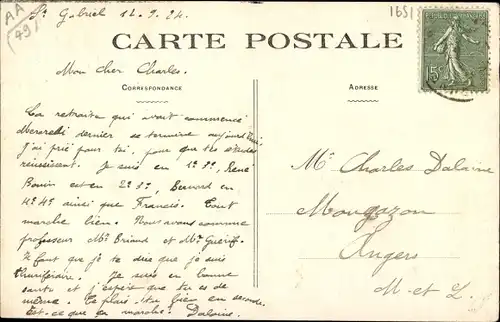 St Gabriel 12. 9. 24.
1651
AA
49
CARTE POSTALE
RÉPUBLIQUE FRANÇAISE
15c
Mon cher Charles.
CORRESPONDANCE
ADRESSE
La retraite qui avait commencé
Mercredi dernier se termine aujourd'hui,
j'ai prié pour toi, pour que tes études
réussissent. Je suis en 1e B1, René
est en 2e B1, Bernard en
4e ainsi que Francis. Tout
marche bien. Nous avons comme
professeur Mr Briand et Mr Guériff.
Il faut que je te dise que je suis
thuriféraire. Je suis en bonne
santé et j'espère que tu es de
même. Te plais-tu bien en seconde.
Est-ce que ça marche. Dalaine.
Mr Charles Dalaine
Mongazon
Angers
M-et L.